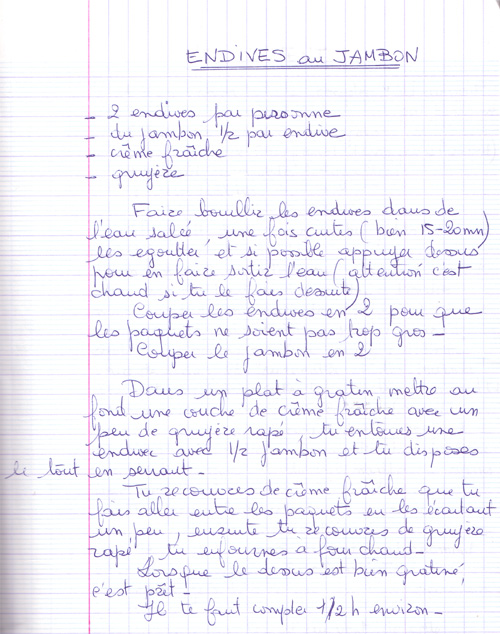 ENDIVES au JAMBON
- 2 endives par personne
- du jambon, 1/2 par endive
- crème fraîche
- gruyère
Faire bouillir les endives dans de
l'eau salée, une fois cuites (bien 15-20mn)
les egoutter et si possible appuyer dessus
pour en faire sortir l'eau (attention c'est
chaud si tu le fais desuite)
Couper les endives en 2 pour que
les paquets ne soient pas trop gros -
Couper le jambon en 2
Dans un plat à gratin, mettre au
fond une couche de crème fraîche avec un
peu de gruyère rapé, tu entoures une
endive avec 1/2 jambon et tu disposes
le tout en serrant -
Tu recouvres de crème fraîche que tu
fais aller entre les paquets en les écartant
un peu, ensuite tu recouvres de gruyère
rapé, tu enfournes à four chaud -
Lorsque le dessus est bien gratiné,
c'est prêt -
Il te faut compter 1/2h environ -